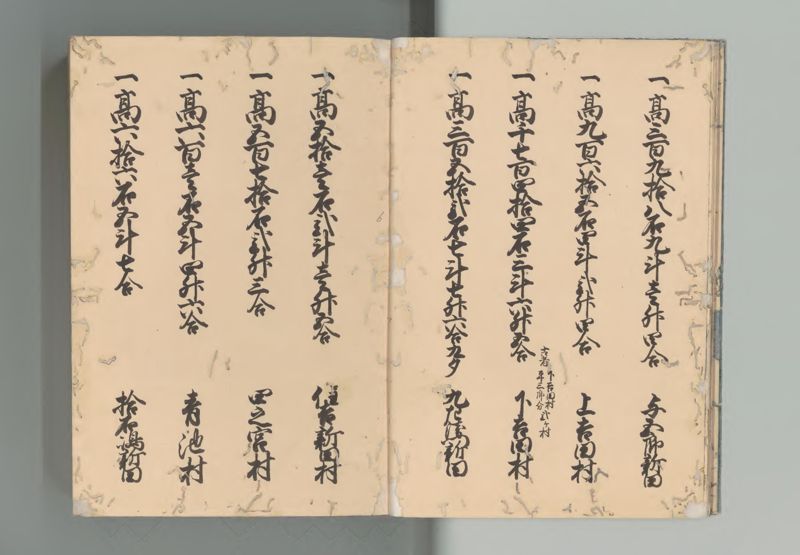 一高三百九拾八石九斗壱升四合 与五郎新田
一高九百六拾五石四斗弐升四合 上吉田村
一高千七百四拾四石三斗六升五合 下吉田村
古者 下吉田村 平三郎分 弐ヶ村
一高三百五拾弐石七斗七升六合九夕 新田
一高五拾壱石弐斗壱升五合 住吉新田村
一高五百七拾石弐升三合 田之宮村
一高六百壱石五斗四升六合 青池村
一高六拾六石五斗七合 拾石嶋新田